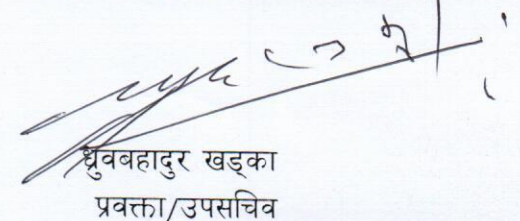 ध्रुवबहादुर खड्का
प्रवक्ता/उपसचिव